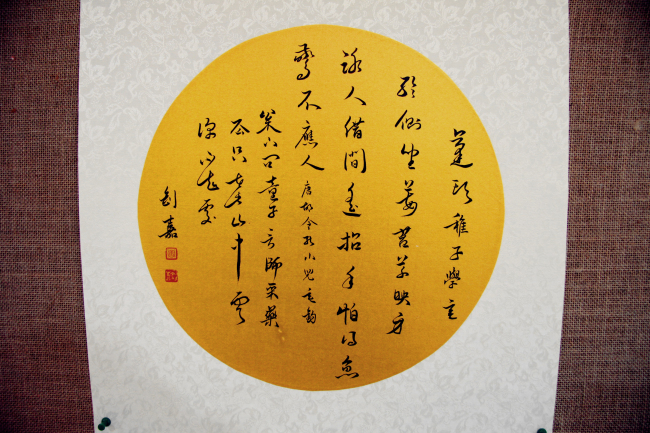 蓬頭稚子學垂
綸側坐莓苔草映身
路人借問遙招手怕得魚
驚不應人 唐胡令能小兒垂釣
松下問童子言師采藥
去只在此山中雲
深不知處
劉嘉